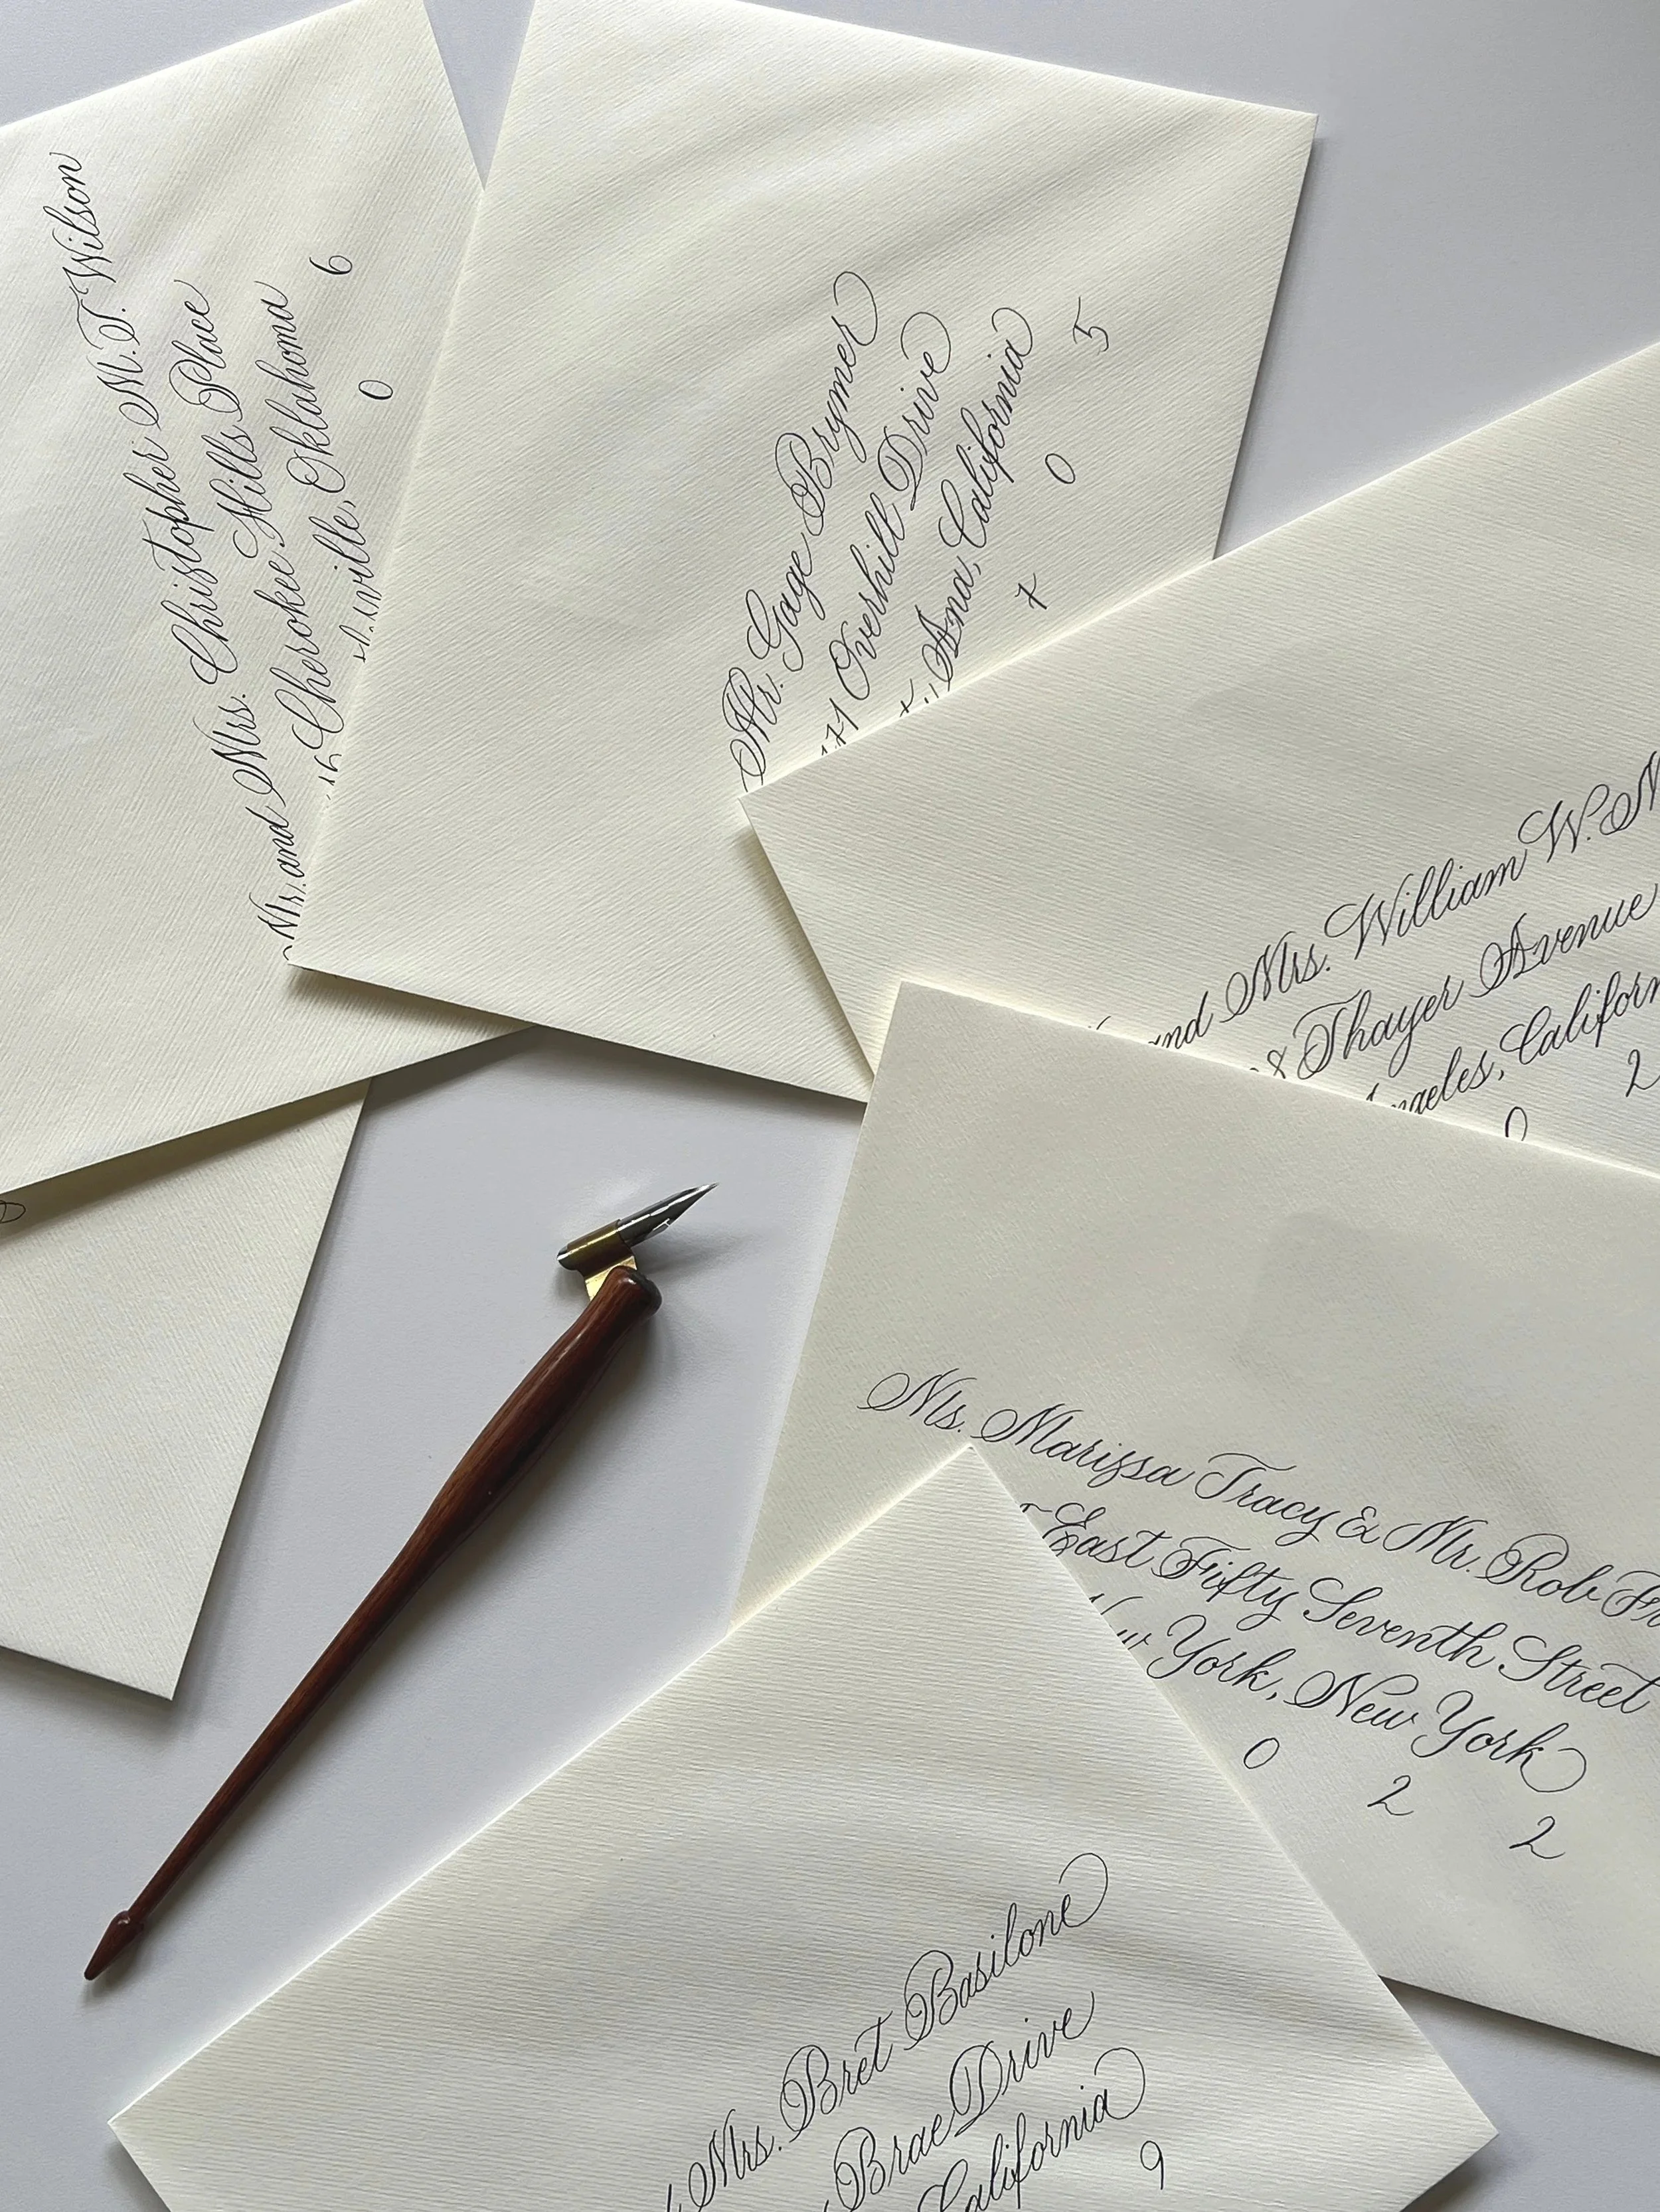 Mr. and Mrs. Christopher M.T. Wilson
16 Cherokee Hills Place
Oklahoma
0 6
Mr. Gage Brymer
171 Overhill Drive
Ana, California
7 0 5
and Mrs. William W.
8 Thayer Avenue
Angeles,
0 2
Ms. Marissa Tracy & Mr. Rob
East Fifty Seventh Street
New York, New York
0 2 2
Mrs. Bret Basilone
Brae Drive
California
9